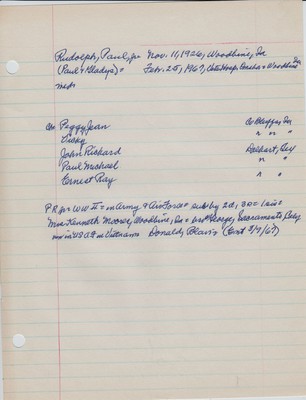 Rudolph, Paul, Jr Nov. 11, 1926, Woodbine, Ia
(Paul & Gladys) Feb. 25, 1967, Vets Hosp. Omaha Woodbine Ia
Peggy Jean Co Bluffs, Ia
Vicky " " "
John Richard
Paul Michael " "
Ernest Ray " "
PR Jr = WW II = in Army & Air Force = sub by 2d, 3s = 1 sis =
Mrs Kenneth Moores, Woodbine, Ia = bro George, Sacramento
in USAF in Vietnam Donald, Blair (Cert 3/7/67)